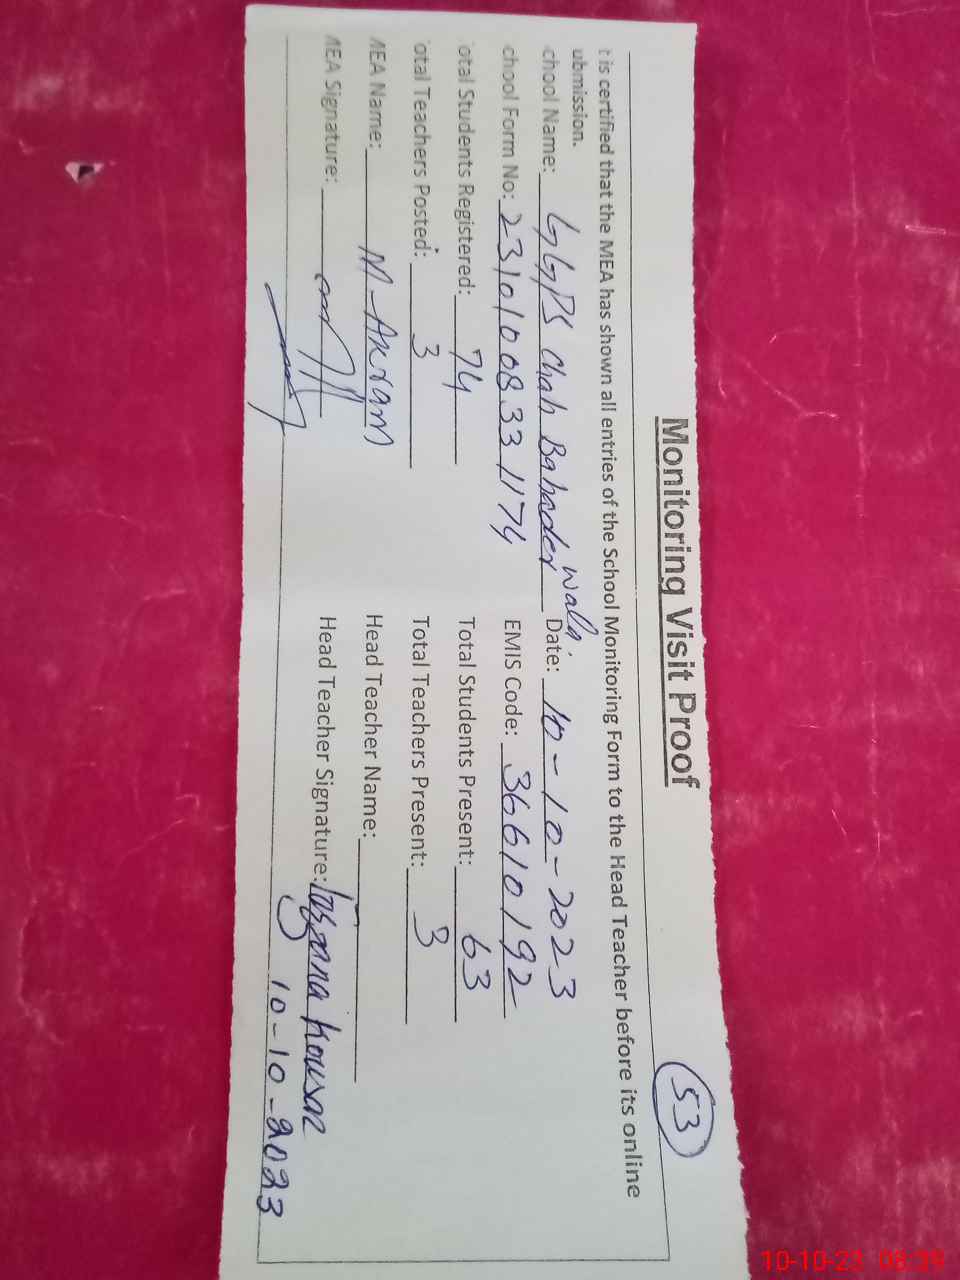 Monitoring Visit Proof
53
t is certified that the MEA has shown all entries of the School Monitoring Form to the Head Teacher before its online
ubmission.
chool Name: GGPS Chah Bahader Wala Date: 10-10-2023
chool Form No: 231010083 31174 EMIS Code: 36610192
otal Students Registered: 74 Total Students Present: 63
otal Teachers Posted: 3 Total Teachers Present: 3
MEA Name: M-Akram Head Teacher Name:
MEA Signature: Head Teacher Signature: Kousar
10-10-2023
10-10-23 08:39